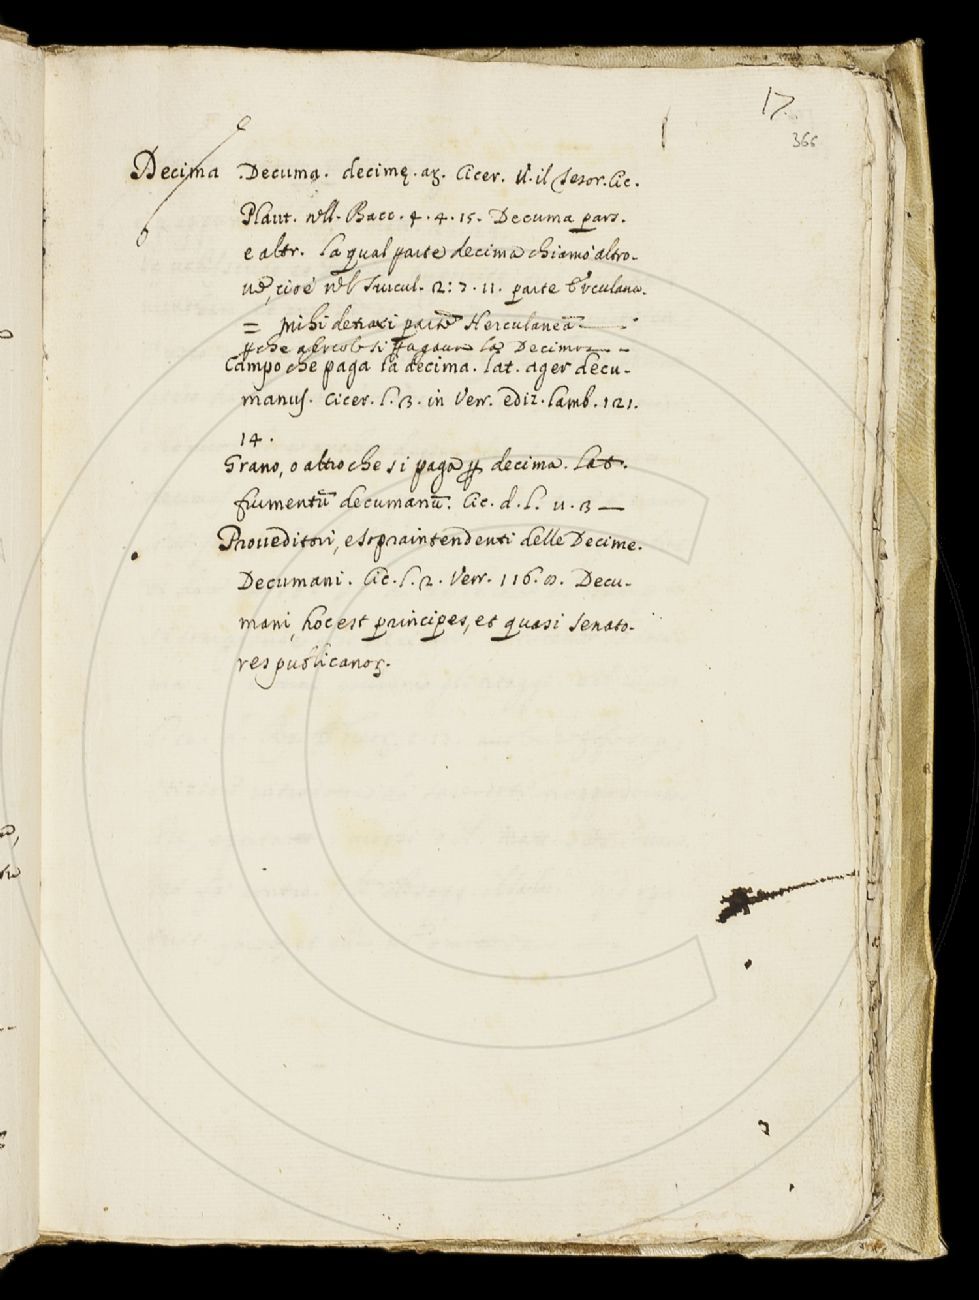 17.
366
Decima Decuma. decimę. aȝ. Cicer. V. il Tesor. Cic.
Plaut. nell. Bacc. 4. 4. 15. Decuma pars.
e altr. la qual parte decima chiamò altro-
ue, cioè nel Trucul. 2: 7. 11. parte Erculana.
= mihi detraxi partē Herculaneā
che a Ercole si pagaua la Decima
Campo che paga la decima. lat. ager decu-
manus. Cicer. l. 3. in Verr. ediz. Lamb. 121.
14.
Grano, o altro che si paga ꝑ decima. lat.
frumentū decumanū. Cic. d. l. u. 3 —
Proueditori, e sopraintendenti delle Decime.
Decumani. Cic. l. 2. Verr. 116. Decu-
mani, hoc est principes, et quasi senato-
res publicanoȝ.